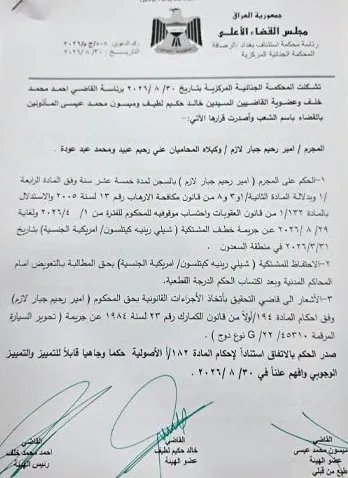 جمهورية العراق
مجلس القضاء الأعلى
رئاسة محكمة استئناف بغداد الرصافة
المحكمة الجنائية المركزية
تشكلت المحكمة الجنائية المركزية بتاريخ ٣٠ /٨ /٢٠٢٦ برئاسة القاضي احمد محمد
خلف وعضوية القاضيين السيدين خالد حكيم لطيف وميسون محمد عيسى المأذونين
بالقضاء باسم الشعب وأصدرت قرارها الآتي:-
المجرم / امير رحيم جبار لازم / وكيلاه المحاميان علي رحيم عبيد ومحمد عبد عودة .
١-الحكم على المجرم ( امير رحيم جبار لازم ) بالسجن لمدة خمسة عشر سنة وفق المادة الرابعة
/١ وبدلالة المادة الثانية/١و٣ و٨ من قانون مكافحة الارهاب رقم ١٣ لسنة ٢٠٠٥ والاستدلال
بالمادة ١/١٣٢ من قانون العقوبات واحتساب موقوفيته للمحكوم للفترة من ١ /٤ /٢٠٢٦ ولغاية
٢٩ /٨ /٢٠٢٦ عن جريمة خطف المشتكية ( شيلي رينيه كيتلسون/ امريكية الجنسية) بتاريخ
٢٠٢٦/٣/٣١ في منطقة السعدون .
٢-الاحتفاظ للمشتكية ( شيلي رينيه كيتلسون/ امريكية الجنسية) بحق المطالبة بالتعويض امام
المحاكم المدنية وبعد اكتساب الحكم الدرجة القطعية.
٣-الأشعار الى قاضي التحقيق بأتخاذ الأجراءات القانونية بحق المحكوم ( امير رحيم جبار لازم)
وفق احكام المادة ١٩٤/أولاً من قانون الكمارك رقم ٢٣ لسنة ١٩٨٤ عن جريمة ( تحوير السيارة
المرقمة ٤٥٣١٠ /٢٢/ G نوع دوج ) .
صدر الحكم بالاتفاق استناداً لإحكام المادة ١٨٢/أ الأصولية حكما وجاهيا قابلاً للتمييز والتمييز
الوجوبي وافهم علناً في ٣٠ / ٨ /٢٠٢٦ .
القاضي
ميسون محمد عيسى
عضو الهيئة
طبع من قبلي
القاضي
خالد حكيم لطيف
عضو الهيئة
القاضي
احمد محمد خلف
رئيس الهيئة